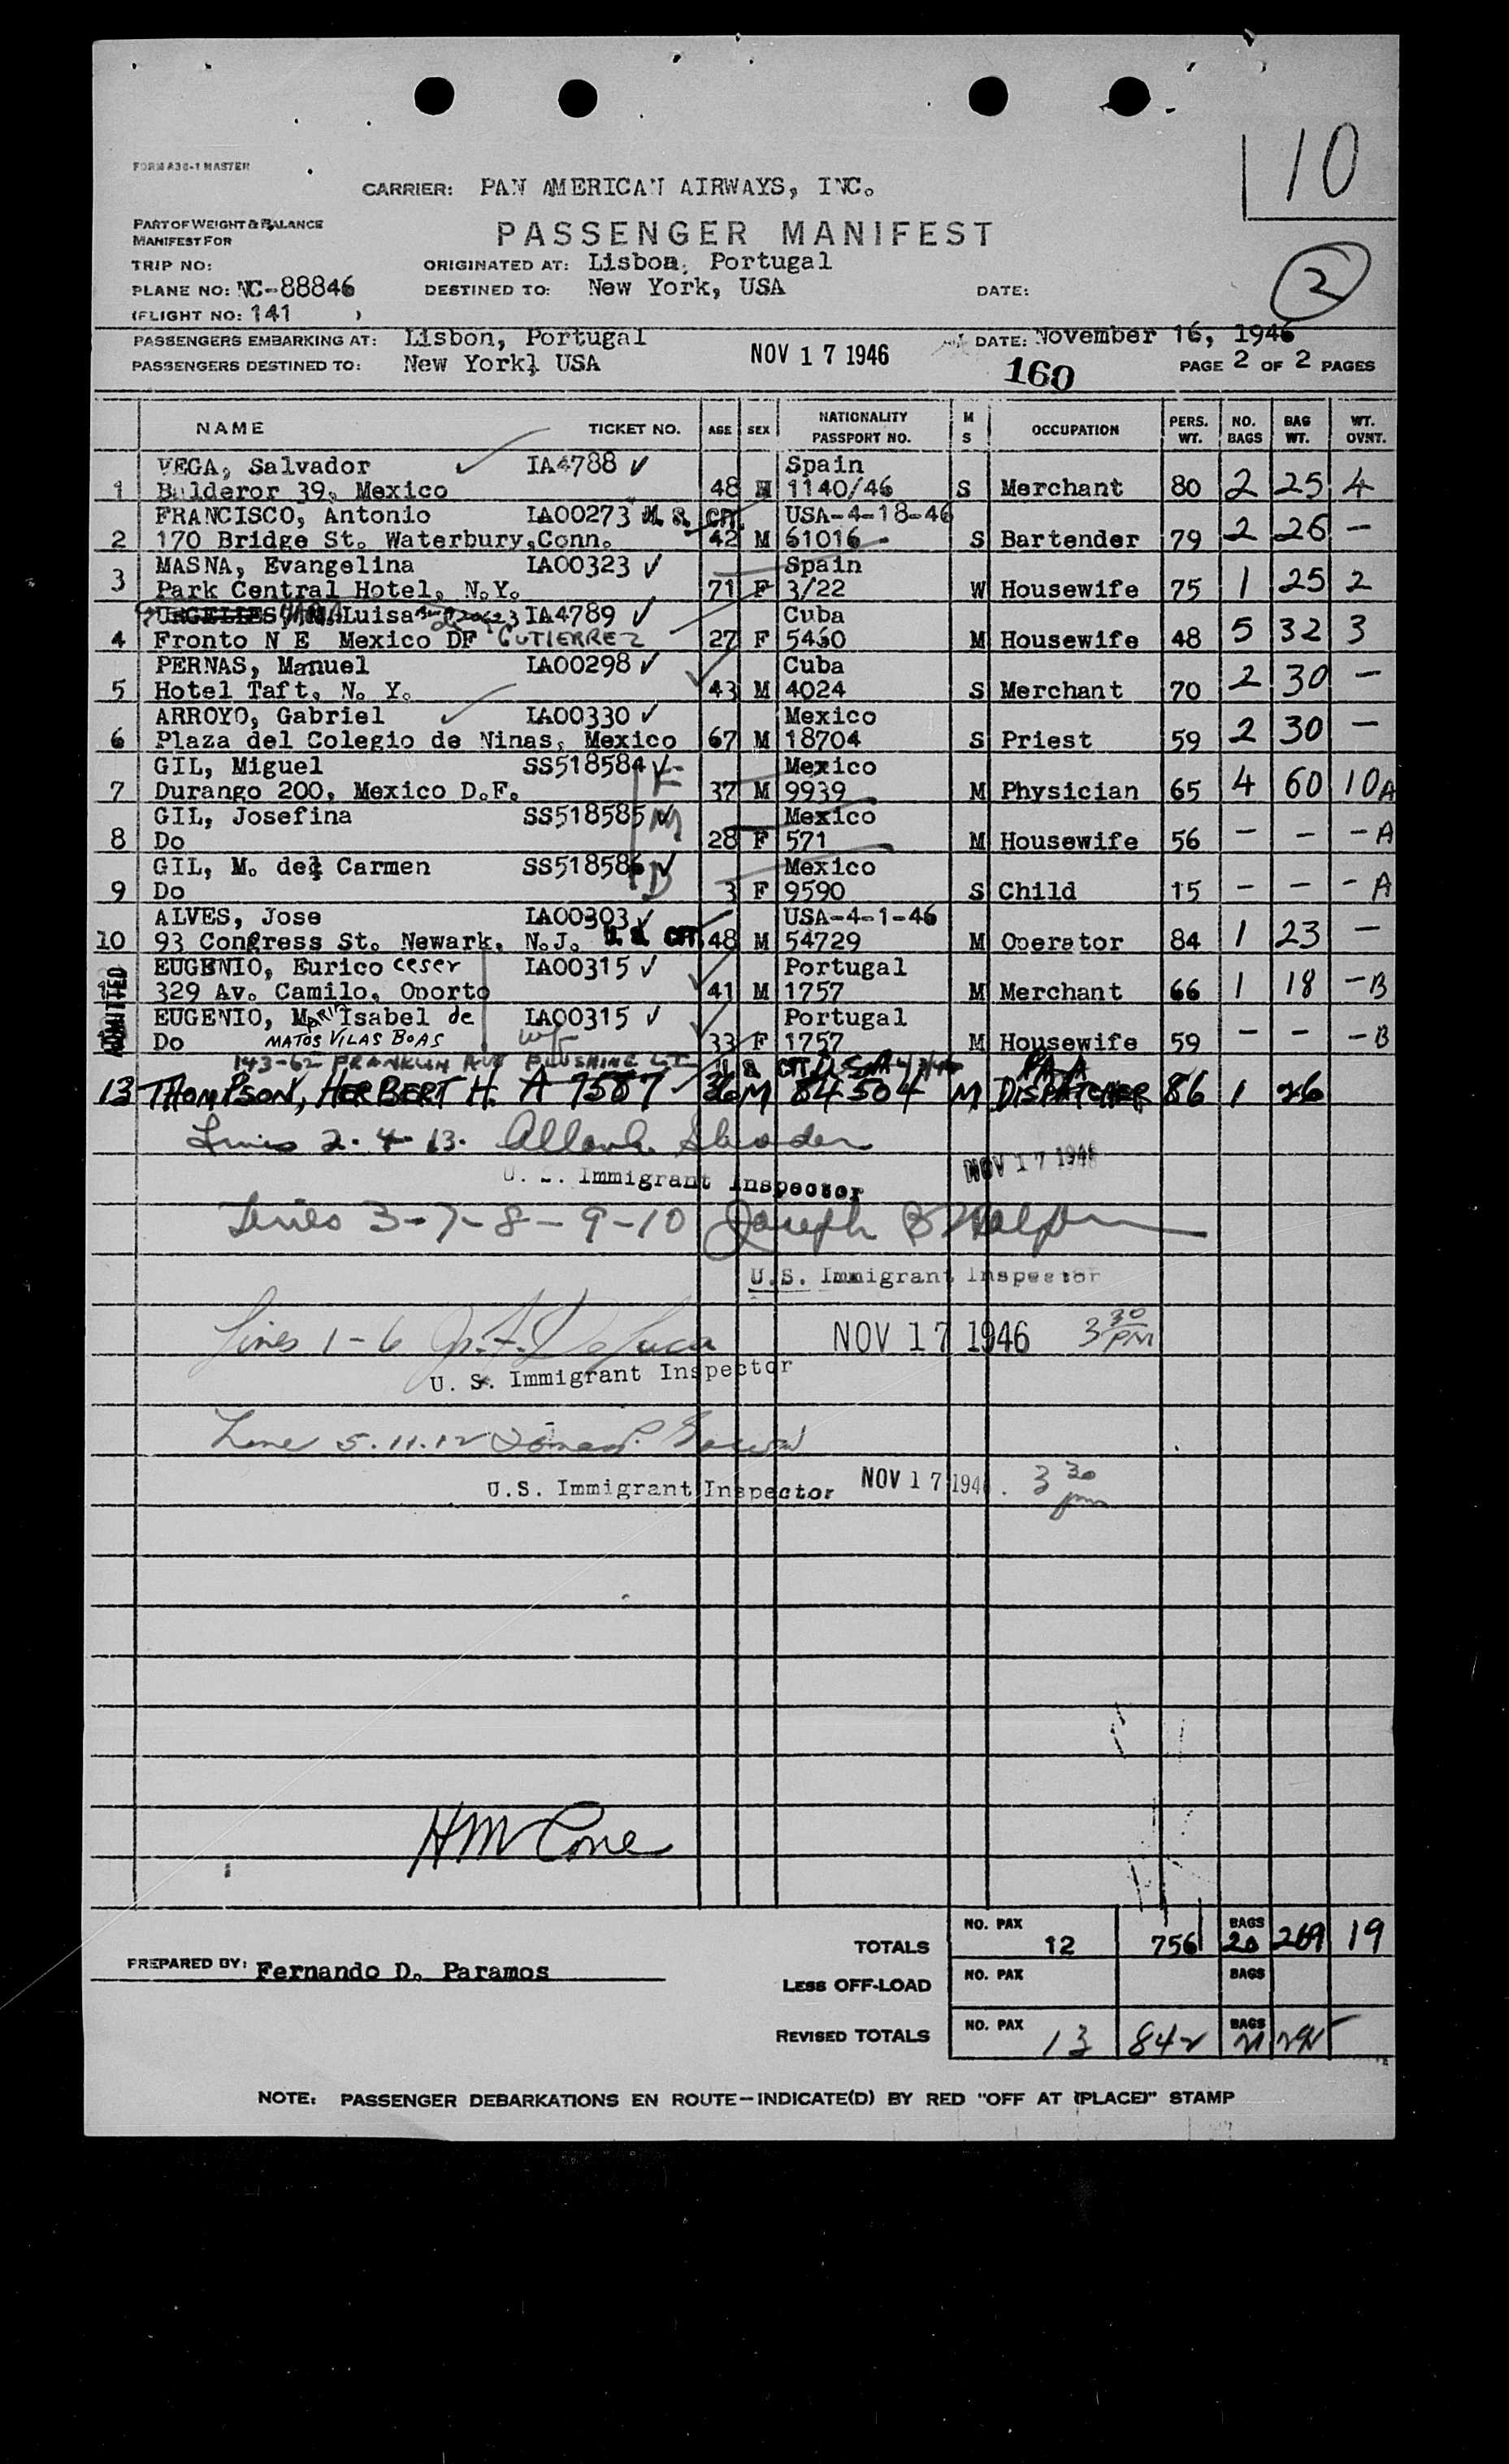 10
FORM A36-1 MASTER
CARRIER: PAN AMERICAN AIRWAYS, INC.
PART OF WEIGHT & BALANCE
MANIFEST FOR
PASSENGER MANIFEST
2
TRIP NO:
ORIGINATED AT: Lisbon, Portugal
PLANE NO: NC-88846
DESTINED TO: New York, USA
DATE:
(FLIGHT NO: 141 )
PASSENGERS EMBARKING AT: Lisbon, Portugal
NOV 17 1946
DATE: November 16, 1946
PASSENGERS DESTINED TO: New York, USA
160
PAGE 2 OF 2 PAGES
NAME TICKET NO. AGE SEX NATIONALITY PASSPORT NO. M S OCCUPATION PERS. WT. NO. BAGS BAG WT. WT. OVNT.
VEGA, Salvador IA4788 ✓ Spain
1 Balderor 39, Mexico 48 M 1140/46 S Merchant 80 2 25 4
FRANCISCO, Antonio IA00273 U. S. CIT. USA-4-18-46
2 170 Bridge St. Waterbury,Conn. 42 M 61016 S Bartender 79 2 26 -
MASNA, Evangelina IA00323 ✓ Spain
3 Park Central Hotel, N.Y. 71 F 3/22 W Housewife 75 1 25 2
URGELLES Luisa IA4789 ✓ Cuba
4 Fronto N E Mexico DF GUTIERREZ 27 F 5430 M Housewife 48 5 32 3
PERNAS, Manuel IA00298 ✓ Cuba
5 Hotel Taft, N. Y. 43 M 4024 S Merchant 70 2 30 -
ARROYO, Gabriel IA00330 ✓ Mexico
6 Plaza del Colegio de Ninas, Mexico 67 M 18704 S Priest 59 2 30 -
GIL, Miguel SS518584 ✓ F Mexico
7 Durango 200, Mexico D.F. 37 M 9939 M Physician 65 4 60 10 A
GIL, Josefina SS518585 ✓ M Mexico
8 Do 28 F 571 M Housewife 56 - - - A
GIL, M. del Carmen SS518586 ✓ D Mexico
9 Do 3 F 9590 S Child 15 - - - A
ALVES, Jose IA00303 ✓ USA-4-1-46
10 93 Congress St. Newark, N.J. U. S. CIT. 48 M 54729 M Operator 84 1 23 -
EUGENIO, Eurico ceser IA00315 ✓ Portugal
ADMITTED 329 Av. Camilo, Oporto 41 M 1757 M Merchant 66 1 18 - B
EUGENIO, MARIA Isabel de IA00315 ✓ Portugal
Do MATOS VILAS BOAS wf 33 F 1757 M Housewife 59 - - - B
143-62 FRANKLIN AVE FLUSHING L I U S CIT. U.S.A PAA
13 THOMPSON, HERBERT H. A 9587 36 M 84504 M DISPATCHER 86 1 26
Lines 2-4-13.
U. S. Immigrant Inspector NOV 17 1946
Lines 3-7-8-9-10 Joseph B Halpin
U.S. Immigrant Inspector
Lines 1-6 DeLuca NOV 17 1946 3 30 PM
U. S. Immigrant Inspector
Line 5.11.12
U.S. Immigrant Inspector NOV 17 194 3 30 pm
HM Cone
TOTALS NO. PAX 12 756 BAGS 20 269 19
PREPARED BY: Fernando D. Paramos
LESS OFF-LOAD NO. PAX BAGS
REVISED TOTALS NO. PAX 13 842 BAGS 21 295
NOTE: PASSENGER DEBARKATIONS EN ROUTE—INDICATE(D) BY RED "OFF AT (PLACE)" STAMP